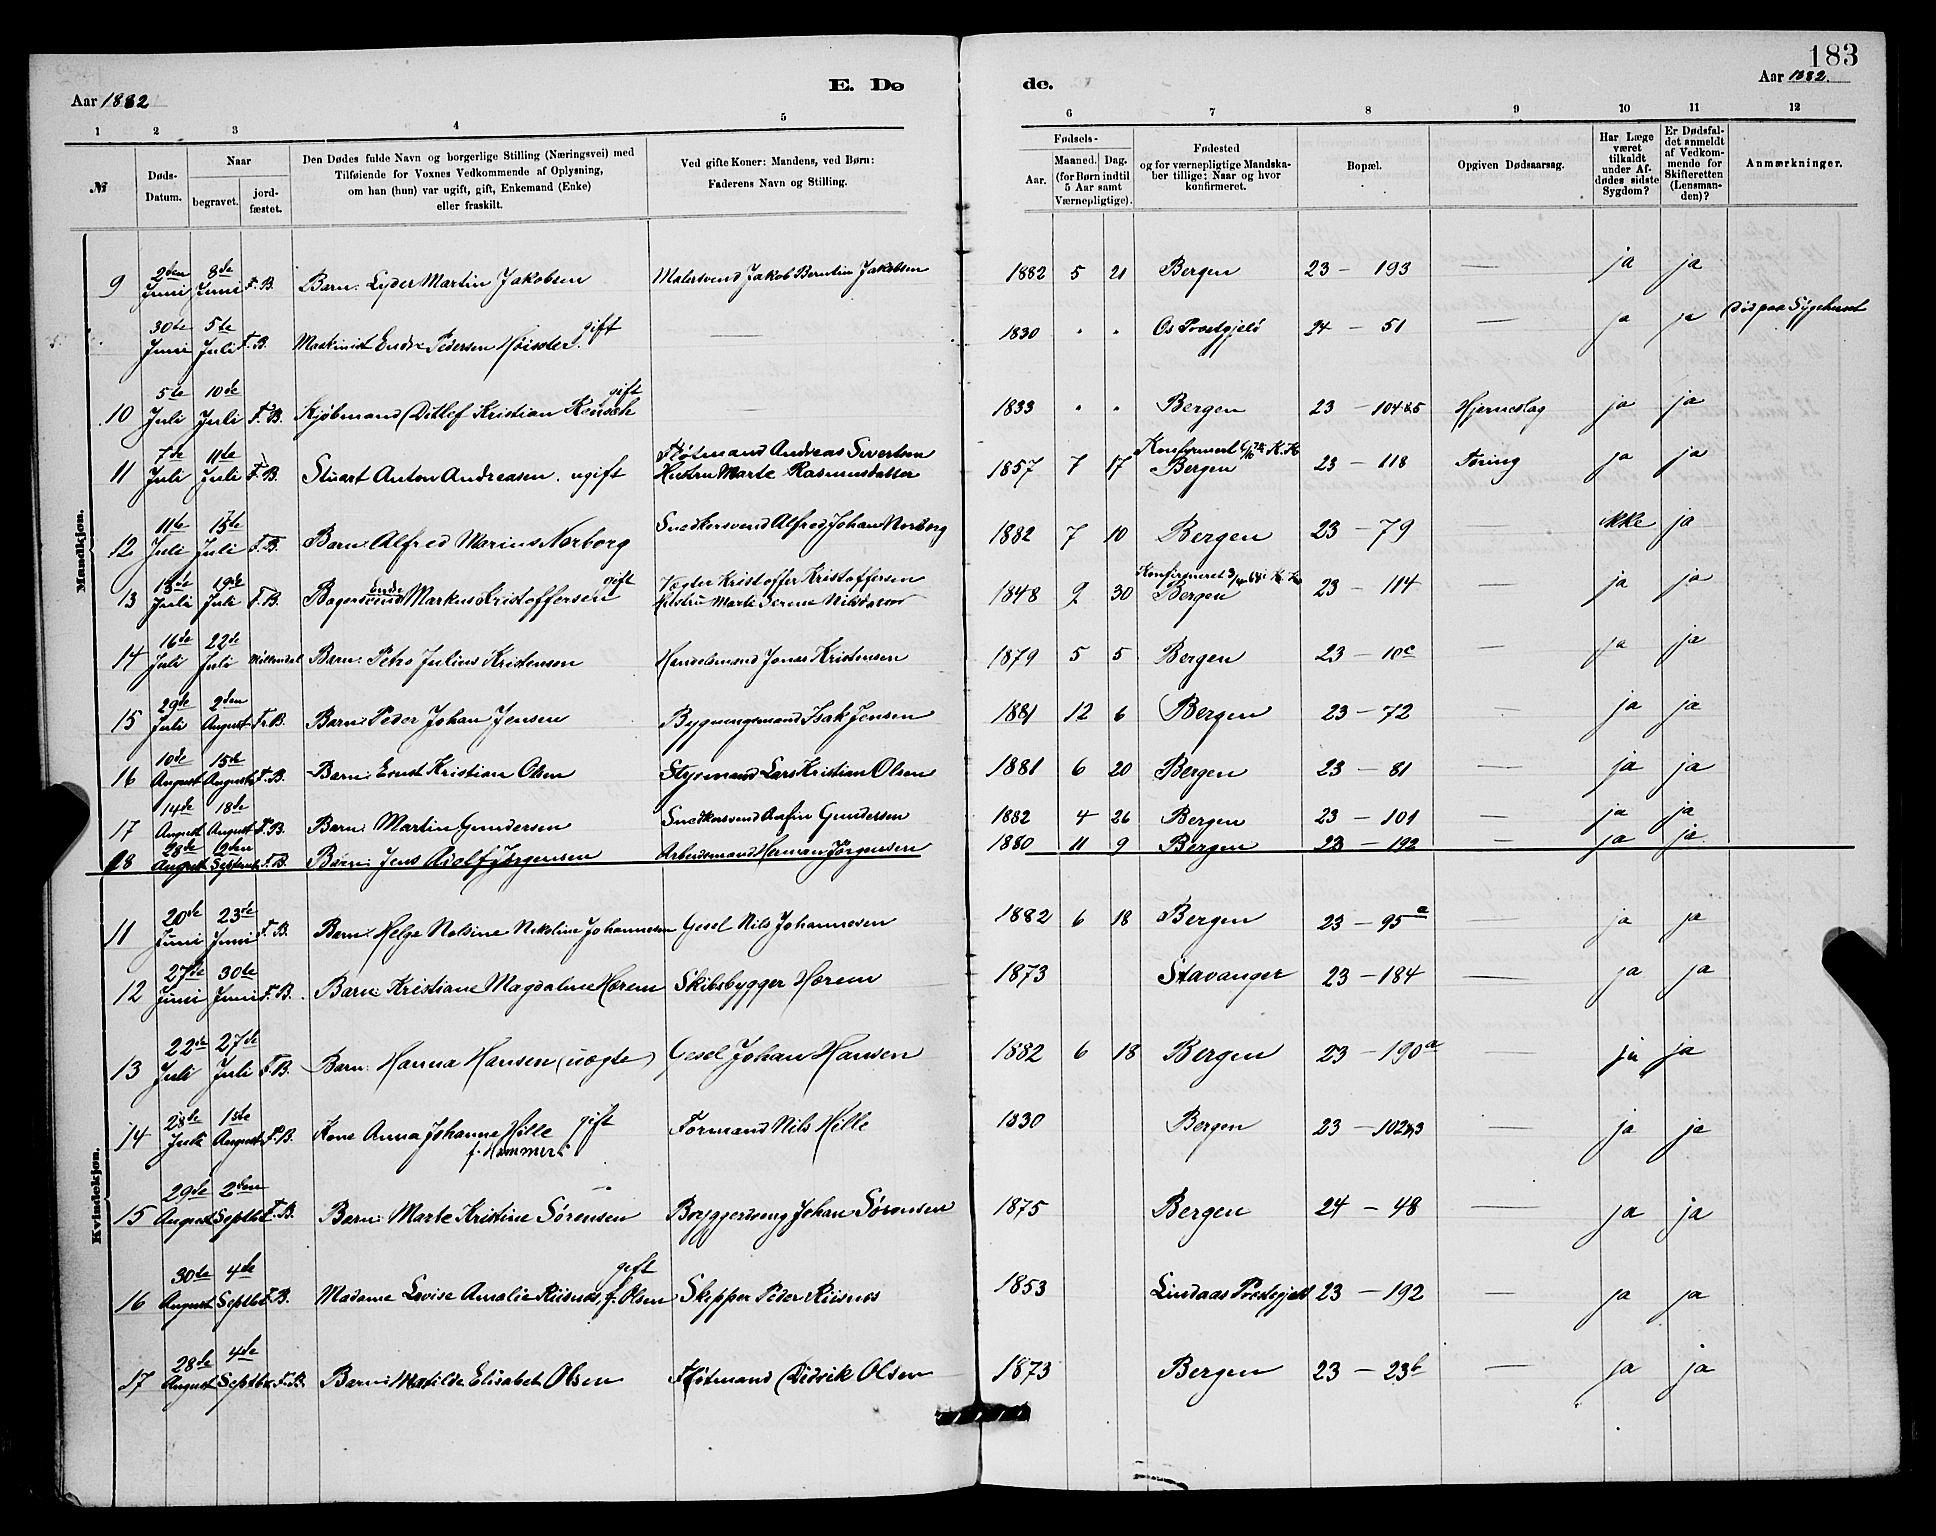 183
Aar 1882
E. Dø
de.
Aar 1882.
1 2 3 4 5 6 7 8 9 10 11 12
№
Døds-Datum.
Naar
begravet.
jordfæstet.
Den Dødes fulde Navn og borgerlige Stilling (Næringsvei) med
Tilføiende for Voxnes Vedkommende af Oplysning,
om han (hun) var ugift, gift, Enkemand (Enke)
eller fraskilt.
Ved gifte Koner: Mandens, ved Børn:
Faderens Navn og Stilling.
Fødsels-
Aar.
Maaned. Dag.
(for Børn indtil
5 Aar samt
Værnepligtige).
Fødested
og for værnepligtige Mandska-
ber tillige: Naar og hvor
konfirmeret.
Bopæl.
Opgiven Dødsaarsag.
Har Læge
været
tilkaldt
under Af-
dødes sidste
Sygdom?
Er Dødsfal-
det anmeldt
af Vedkom-
mende for
Skifteretten
(Lensman-
den)?
Anmærkninger.
Mandkjøn.
9 2den Juni 8de Juni F.B. Barn: Lyder Martin Jakobsen Malersvend Jakob Berntin Jakobsen 1882 5 21 Bergen 23 - 193 — ja ja
30te Juni 5te Juli F.B. Maskinist Endre Pedersen gift — 1830 " " Os Præstgjeld 24 - 51 — ja ja Død paa Sygehuset
10 5te Juli 10de Juli F.B. Kjøbmand Ditlef Kristian Rensch gift — 1833 " " Bergen 23 - 104&5 Hjerneslag ja ja
11 7de Juli 11te Juli F.B. Stuart Anton Andreasen. ugift Fløtmand Andreas Sivertsen
Hustru Marte Rasmusdatter 1857 7 17 Konfirmeret K.K. Bergen 23 - 118 Tæring ja ja
12 11te Juli 15te Juli F.B. Barn: Alfred Marius Norborg Snedkersvend Alfred Johan Norborg 1882 7 10 Bergen 23 - 79 — ikke ja
13 13de Juli 19de Juli F.B. Bagersvend Markus Kristoffersen gift Vægter Kristoffer Kristoffersen
Hustru Marte Serene Nilsdatter 1848 9 30 Konfirmeret K.K. Bergen 23 - 114 — ja ja
14 16de Juli 22de Juli Barn: Petro Julius Kristensen Handelsmand Jonas Kristensen 1879 5 5 Bergen 23 - 10c — ja ja
15 29de Juli 2den August Fr.B. Barn: Peder Johan Jensen Bygningsmand Isak Jensen 1881 12 6 Bergen 23 - 72 — ja ja
16 10de August 15de August F.B. Barn: Ernst Kristian Olsen Styrmand Lars Kristian Olsen 1881 6 20 Bergen 23 - 81 — ja ja
17 14de August 18de August F.B. Barn: Martin Gundersen Snedkersvend Gundersen 1882 4 26 Bergen 23 - 101 — ja ja
18 28de August F.B. Barn: Jens Adolf Jørgensen Arbeidsmand Herman Jørgensen 1880 11 9 Bergen 23 - 192 — ja ja
Kvindekjøn.
11 20de Juni 23de Juni F.B. Barn: Helga Nikoline Johannesen Gesel Nils Johannesen 1882 6 18 Bergen 23 - 95a — ja ja
12 27de Juni 30te Juni F.B. Barn: Kristiane Magdalene Hærem Skibsbygger Hærem 1873 Stavanger 23 - 184 — ja ja
13 22de Juli 27de Juli F.B. Barn: Hanna Hansen (uægte) Gesel Johan Hansen 1882 6 18 Bergen 23 - 190a — ja ja
14 28de Juli 1ste August F.B. Kone Anna Johanne Hille gift
f. Hammer Formand Nils Hille 1830 Bergen 23 - 102&3 — ja ja
15 29de August 2den Septbr F.B. Barn: Marte Kristine Sørensen Johan Sørensen 1875 Bergen 24 - 48 — ja ja
16 30de August 4de Septbr F.B. Madame Lovise Amalie Riisnæs, f. Olsen gift Skipper Peder Riisnæs 1853 Lindaas Præstegjeld 23 - 192 — ja ja
17 28de August 4de Septbr F.B. Barn: Matilde Elisabet Olsen Fløtmand Didrik Olsen 1873 Bergen 23 - 23b — ja ja